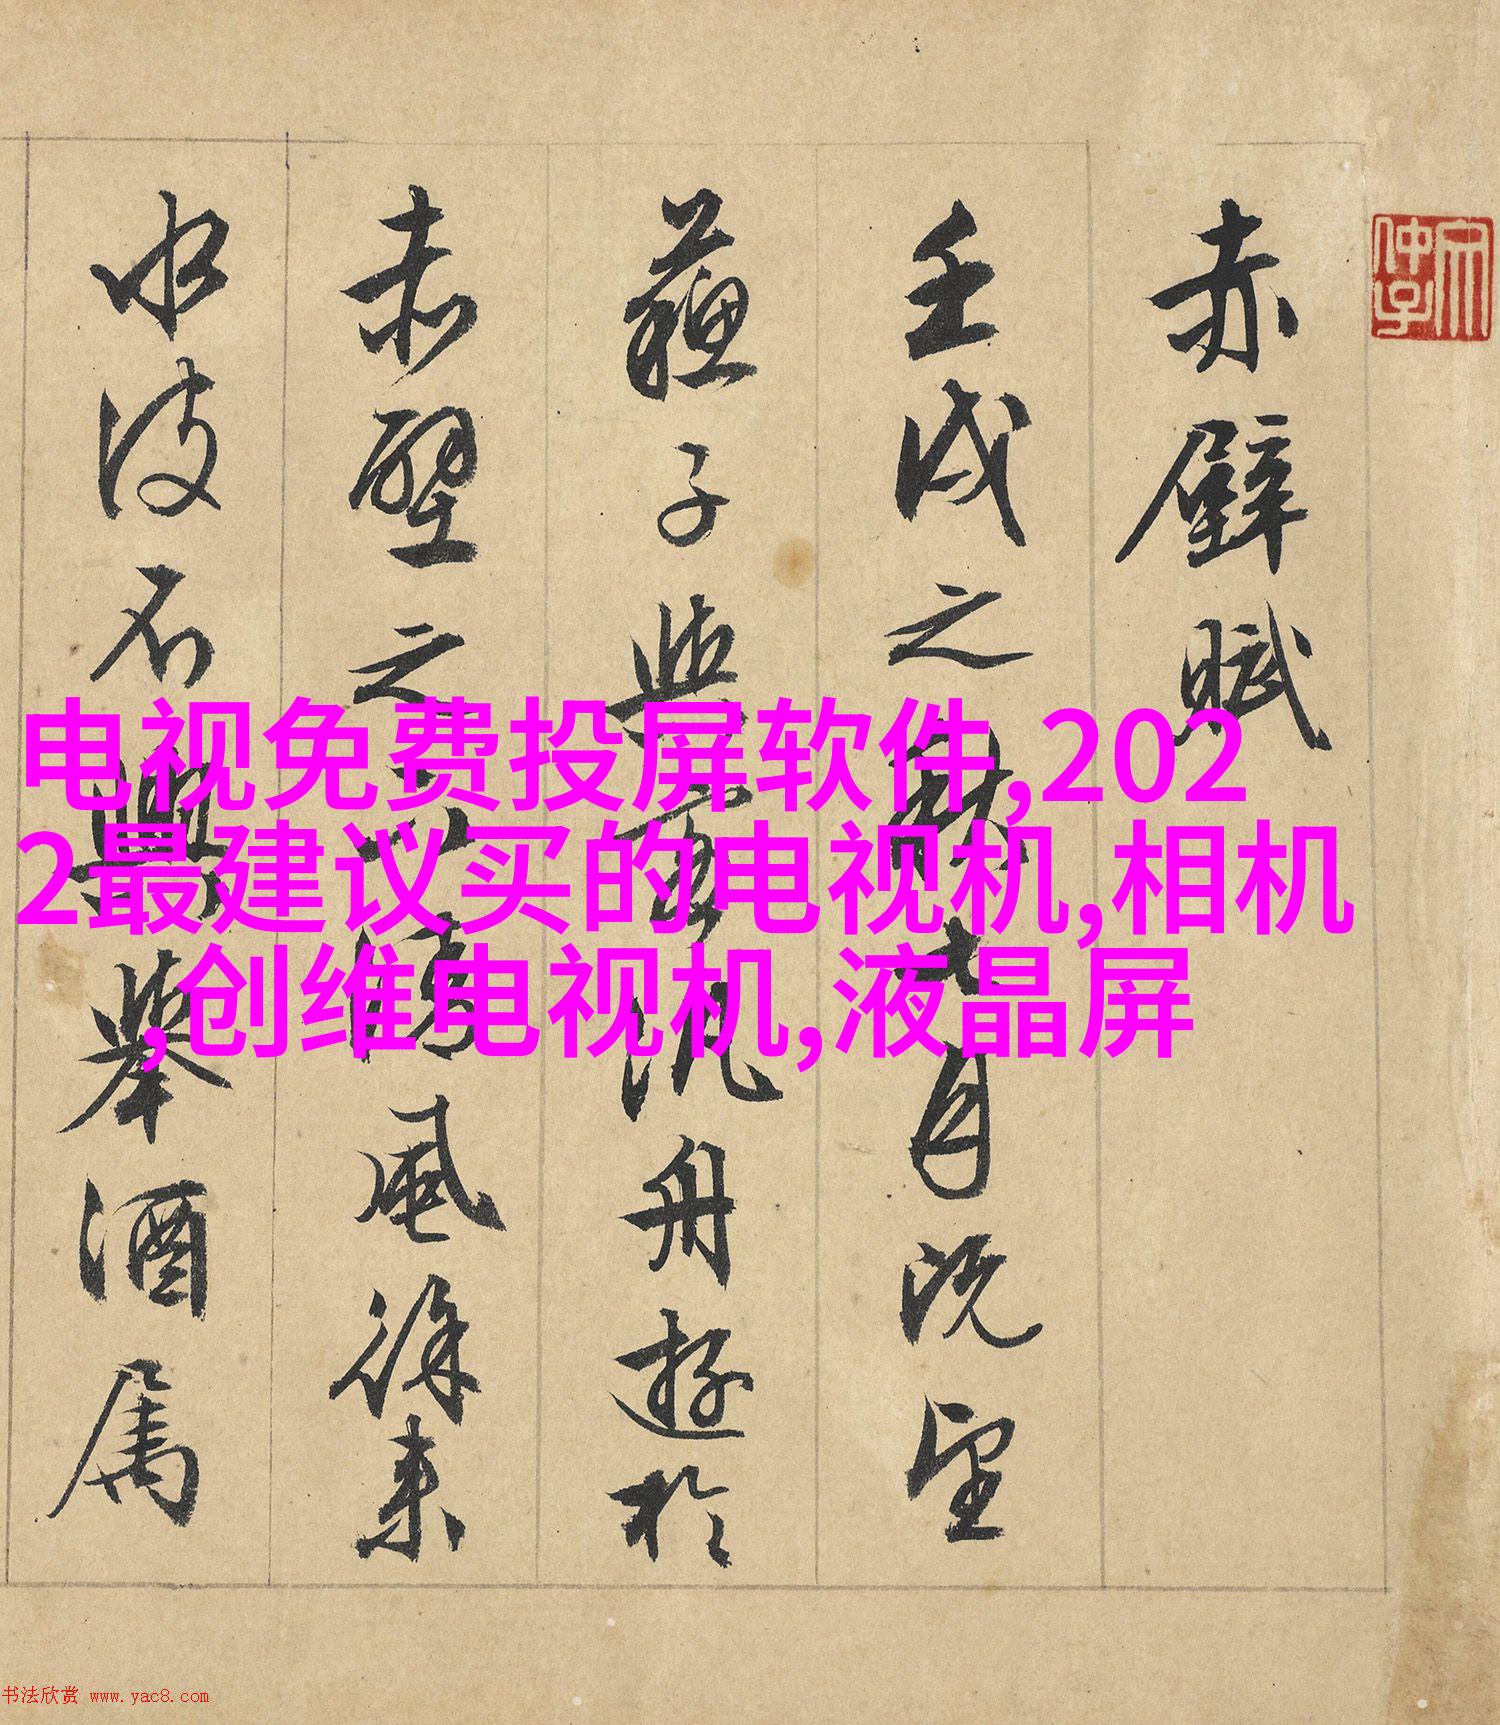 赤壁賦
壬戌之秋七月既望
蘇子與客泛舟遊於
赤壁之下清風徐来
水波不興舉酒属
电视免费投屏软件,202
2最建议买的电视机,相机
,创维电视机,液晶屏
书法欣赏 www.yac8.com